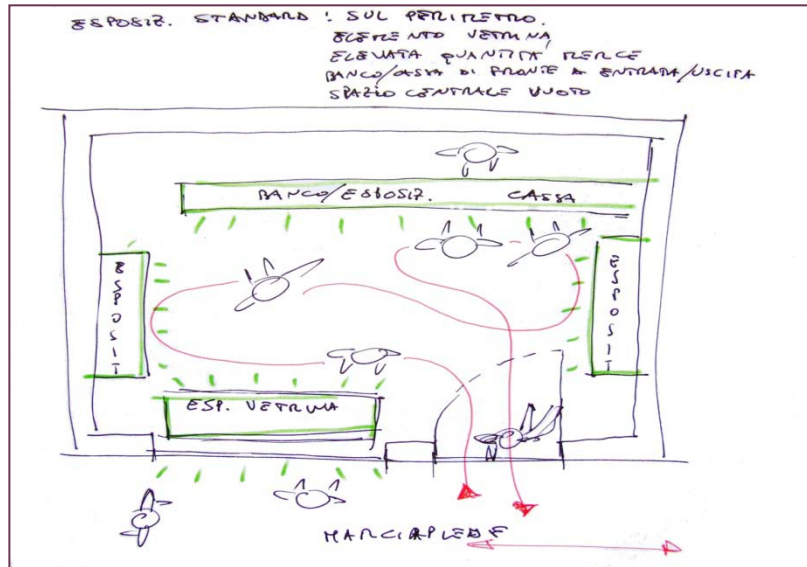 ESPOSIZ. STANDARD: SUL PERIMETRO.
ELEMENTO VETRINA,
ELEVATA QUANTITÀ MERCE
BANCO/CASSA DI FRONTE A ENTRATA/USCITA
SPAZIO CENTRALE VUOTO
BANCO/ESPOSIZ. CASSA
ESPOSIT
ESPOSIT
ESP. VETRINA
MARCIAPIEDE